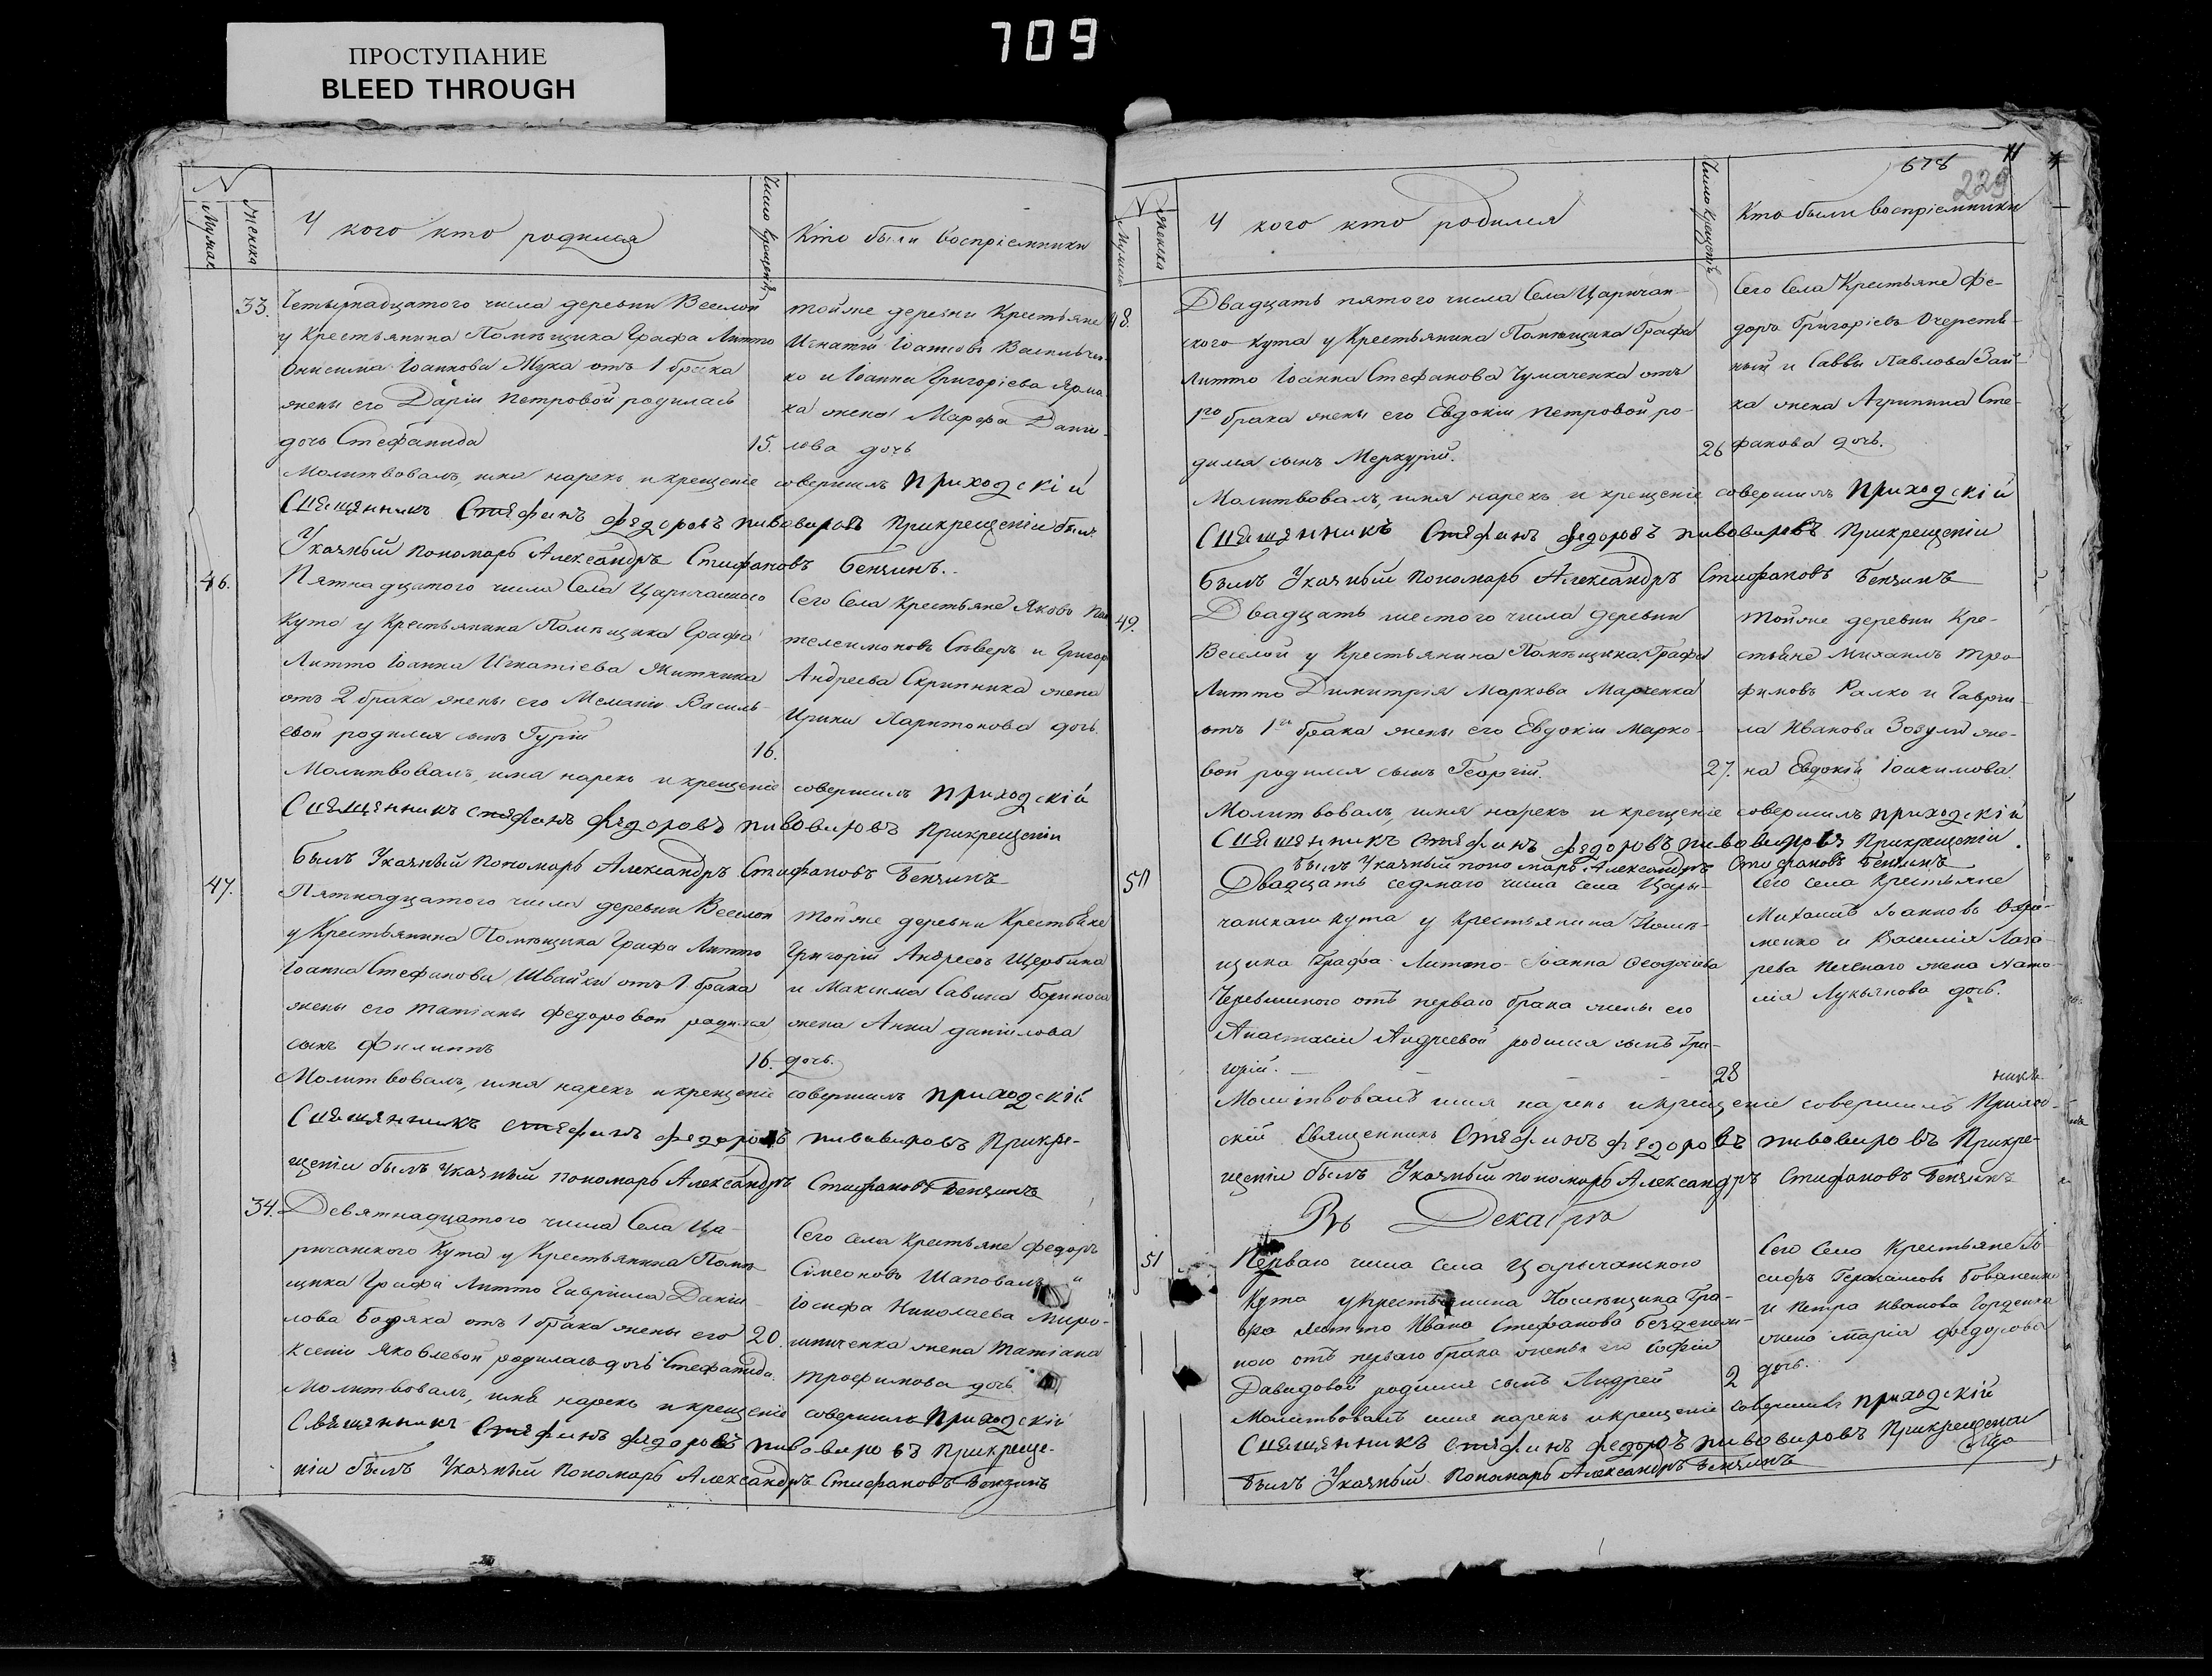 ПРОСТУПАНИЕ
BLEED THROUGH
709
N
Мужск
Женска
У кого кто родился
Число крещенія
Кто были воспріемники
33.
Четырнадцатого числа деревни Веселой
у Крестьянина Помѣщика Графа Литто
Онисима Іоаннова Жука отъ 1 брака
жены его Даріи Петровой родилась
дочь Стефанида
15.
тойже деревни Крестьяне
Игнатій Іоанновъ
и Іоанна Григоріева
жена Марфа Дани-
лова дочь
Молитвовалъ, имя нарекъ и крещеніе совершилъ приходскій
Священникъ Стефанъ Федоровъ Пивоваровъ Прикрещеніи былъ
Указный Пономарь Александръ Стифановъ Бензинъ.
46.
Пятнадцатого числа Села Царичанского
Кута у Крестьянина Помѣщика Графа
Литто Іоанна Игнатіева Житника
отъ 2 брака жены его Меланіи Василь-
евой родился сынъ Гурій
16.
Сего Села Крестьяне Яковъ Пан
телеимоновъ Сѣверъ и Григор
Андреева Скрипника жена
Ирина Харитонова дочь.
Молитвовалъ, имя нарекъ и крещеніе совершилъ приходскій
Священникъ Стефанъ Федоровъ Пивоваровъ Прикрещеніи
былъ Указный Пономарь Александръ Стифановъ Бензинъ
47.
Пятнадцатого числа деревни Веселой
у Крестьянина Помѣщика Графа Литто
Іоанна Стефанова Швайки отъ 1 брака
жены его Татіаны Федоровой родился
сынъ Филиппъ
16.
Тойже деревни Крестьяне
Григорій Андреевъ Щербина
и Максима Савина
жена Анна Даніилова
дочь.
Молитвовалъ, имя нарекъ и крещеніе совершилъ приходскій
Священникъ Стефанъ Федоровъ Пивоваровъ Прикре-
щеніи былъ Указный Пономарь Александръ Стифановъ Бензинъ
34.
Девятнадцатого числа Села Ца-
ричанского Кута у Крестьянина Помѣ
щика Графа Литто Гавріила Даніи
лова Бодяка отъ 1 брака жены его
Ксеніи Яковлевой родилась дочь Стефанида.
20.
Сего села Крестьяне Федоръ
Симеоновъ Шаповалъ и
Іосифа Николаева Миро-
шниченка жена Татіана
Трофимова дочь
Молитвовалъ, имя нарекъ и крещеніе совершилъ Приходскій
Священникъ Стефанъ Федоровъ Пивоваровъ Прикреще-
ніи былъ Указный Пономарь Александръ Стифановъ Бензинъ
678
229
N
Мужска
Женска
У кого кто родился
Число крещенія
Кто были воспріемники
48.
Двадцать пятого числа Села Царичан-
ского Кута у Крестьянина Помѣщика Графа
Литто Іоанна Стефанова Чумаченка отъ
1го брака жены его Евдокіи Петровой ро-
дился сынъ Меркурій.
26
Сего Села Крестьяне Фе-
доръ Григоріевъ
и Саввы Павлова Зай
ка жена Агрипина Сте-
фанова дочь.
Молитвовалъ, имя нарекъ и крещеніе совершилъ приходскій
Священникъ Стефанъ Федоровъ Пивоваровъ Прикрещеніи
былъ Указный Пономарь Александръ Стифановъ Бензинъ
49.
Двадцать шестого числа деревни
Веселой у Крестьянина Помѣщика Графа
Литто Димитрія Маркова Марченка
отъ 1го брака жены его Евдокіи Марко-
вой родился сынъ Георгій.
27.
Тойже деревни Кре-
стьяне Михаилъ Тро-
фимовъ Ралко и Гаврии-
ла Иванова Зозули же-
на Евдокія Іоакимова.
Молитвовалъ, имя нарекъ и крещеніе совершилъ приходскій
Священникъ Стефанъ Федоровъ Пивоваровъ Прикрещеніи
былъ Указный пономарь Александръ Стифановъ Бензинъ
50
Двадцать седмаго числа села Цари-
чанскаго Кута у Крестьянина Помѣ-
щика Графа Литто Іоанна Феодосіева
отъ перваго брака жены его
Анастасіи Андреевой родился сынъ Гри-
горій.
28
Сего села Крестьяне
Михаилъ Іоанновъ
и Василія Лаза-
рева жена Ната-
лія Лукьянова дочь.
Молитвовалъ имя нарекъ и крещеніе совершилъ Приход-
скій Священникъ Стефанъ Федоровъ Пивоваровъ Прикре-
щеніи былъ Указный пономарь Александръ Стифановъ Бензинъ
Въ Декабрѣ
51
Перваго числа села Царычанского
Кута у Крестьянина Помѣщика Гра-
фа Литто Ивана Стефанова
отъ перваго брака жены его Софіи
Давидовой родился сынъ Андрей
2
Сего Села Крестьяне Іо
сифъ Герасимовъ Бованенко
и Петра Иванова Горденка
жена Марія Федорова
дочь.
Молитвовалъ имя нарекъ и крещеніе совершилъ приходскій
Священникъ Стефанъ Федоровъ Пивоваровъ Прикрещеніи
былъ Указный Пономарь Александръ Бензинъ